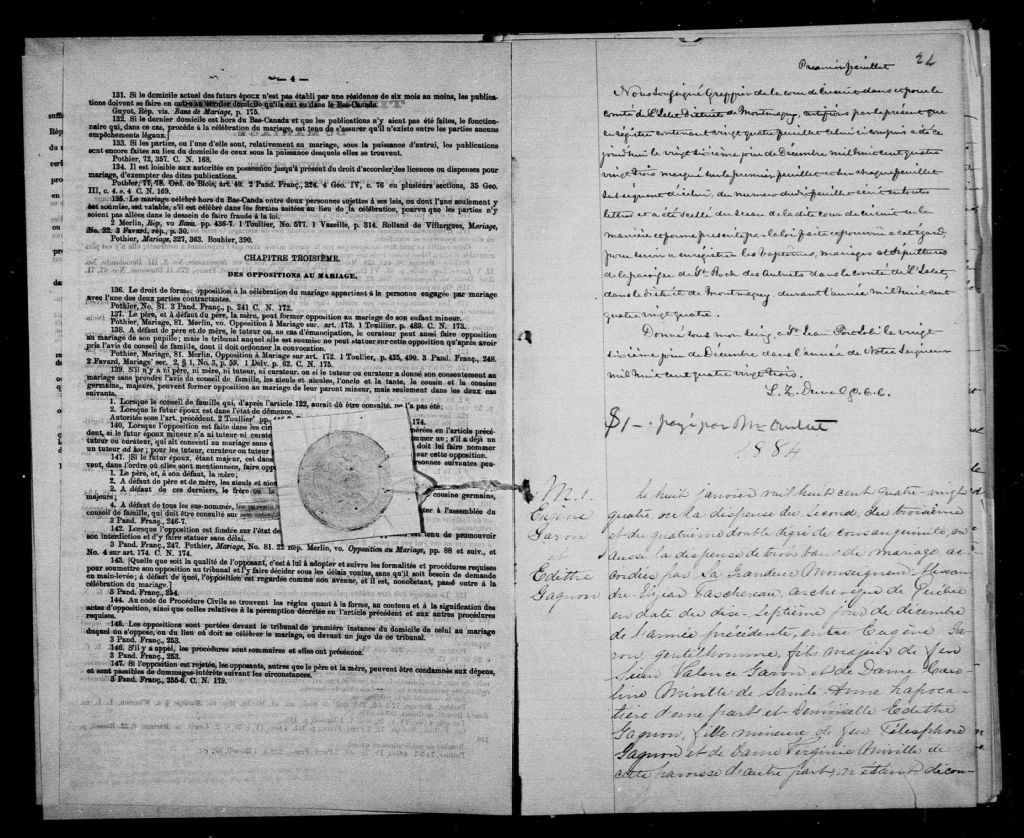 — 4 —
131. Si le domicile actuel des futurs époux n'est pas établi par une résidence de six mois au moins, les publica-
tions doivent se faire en outre au dernier domicile qu'ils ont eu dans le Bas-Canada.
Guyot, Rép. vis. Bans de Mariage, p. 175.
132. Si le dernier domicile est hors du Bas-Canada et que les publications n'y aient pas été faites, le fonction-
naire qui, dans ce cas, procède à la célébration du mariage, est tenu de s'assurer qu'il n'existe entre les parties aucuns
empêchements légaux.
133. Si les parties, ou l'une d'elles sont, relativement au mariage, sous la puissance d'autrui, les publications
sont encore faites au lieu du domicile de ceux sous la puissance desquels elles se trouvent.
Pothier, 72, 357. C. N. 168.
134. Il est loisible aux autorités en possession jusqu'à présent du droit d'accorder des licences ou dispenses pour
mariage, d'exempter des dites publications.
Pothier, 77, 78. Ord. de Blois, art. 40. 2 Pand. Franç., 324. 4 Geo. IV, c. 76 en plusieurs sections, 35 Geo.
III, c. 4. s. 4 C. N. 169.
135. Le mariage célébré hors du Bas-Canda entre deux personnes sujettes à ses lois, ou dont l'une seulement y
est soumise, est valable, s'il est célébré dans les formes usitées au lieu de la célébration, pourvu que les parties n'y
soient pas allées dans le dessein de faire fraude à la loi.
2 Merlin, Rép, vo Bans. pp. 436-7. 1 Toullier, No. 577. 1 Vazeille, p. 314. Rolland de Villargues, Mariage,
No. 22. 3 Favard, rép., p. 30.
Pothier, Mariage, 327, 363. Bouhier, 390.
CHAPITRE TROISIÈME.
DES OPPOSITIONS AU MARIAGE.
136. Le droit de former opposition à la célébration du mariage appartient à la personne engagée par mariage
avec l'une des deux parties contractantes.
Pothier, No. 81. 3 Pand. Franç., p. 241 C. N. 172.
137. Le père, et à défaut du père, la mère, peut former opposition au mariage de son enfant mineur.
Pothier, Mariage, 81. Merlin, vo. Opposition à Mariage sur. art. 173. 1 Touillier. p. 489. C. N. 173.
138. A défaut de père et de mère, le tuteur ou, au cas d'émancipation, le curateur peut aussi faire opposition
au mariage de son pupille; mais le tribunal auquel elle est soumise ne peut statuer sur cette opposition qu'après avoir
pris l'avis du conseil de famille, dont il doit ordonner la convocation.
Pothier, Mariage, 81. Merlin, Opposition à Mariage sur art. 172. 1 Toullier, p. 425, 490. 3 Pand. Franç., 248.
2 Favard, Mariage sec. 2. § 1, No. 5, p. 59. 1 Delv. p. 62. C. N. 175.
139. S'il n'y a ni père, ni mère, ni tuteur, ni curateur, ou si le tuteur ou curateur a donné son consentement au
mariage sans prendre l'avis du conseil de famille, les aieuls et aieules, l'oncle et la tante, le cousin et la cousine
germains, majeurs, peuvent former opposition au mariage de leur parent mineur, mais seulement dans les deux cas
suivants.
1. Lorsque le conseil de famille qui, d'après l'article 122, aurait dû être consulté, ne l'a pas été:
2. Lorsque le futur époux est dans l'état de démence.
Autorités sous l'art. précédent. 2 Toullier
174.
140. Lorsque l'opposition est faite dans les cir
dent, si le futur époux mineur n'a ni tuteur ni curate
tuteur ou curateur, qui ait concenti au mariage sans
un tuteur ad hoc; pour les tuteur, curateur ou tuteur
141. Si le futur époux, étant majeur, est dans
vant, dans l'ordre où elles sont mentionnées, faire opp
1. Le père, et, à son défaut, la mère;
2. A défaut de père et de mère, les aieuls et aieu
3. A défaut de ces derniers, le frère ou la
cousine germains,
majeurs;
4. A défaut de tous les sus-nommés, les
ter à l'assemblée du
conseil de famille, qui doit être consulté sur
3 Pand. Franç., 246-7.
142. Lorsque l'opposition est fondée sur l'état de
tenu de promouvoir
son interdiction et d'y faire statuer sans délai.
3 Pand. Franç., 247. Pothier, Mariage, No. 81. 22 Rép. Merlin, vo. Opposition au Mariage, pp. 88 et suiv., et
No. 4 sur art. 174. C. N. 174.
143. Quelle que soit la qualité de l'opposant, c'est à lui à adopter et suivre les formalités et procédures requises
pour soumettre son opposition au tribunal et l'y faire décider sous les délais voulus, sans qu'il soit besoin de demande
en main-levée; à défaut de quoi, l'opposition est regardée comme non avenue, et il est, nonobstant, passé outre à la
célébration du mariage.
3 Pand. Franç., 254.
144. Au code de Procédure Civile se trouvent les règles quant à la forme, au contenu et à la signification des
actes d'opposition, ainsi que celles relatives à la péremption décrétée en l'article précédent et aux autres procédures
requises.
145. Les oppositions sont portées devant le tribunal de première instance du domicile de celui au mariage
duquel on s'oppose, ou du lieu où doit se célébrer le mariage, ou devant un juge de ce tribunal.
3 Pand. Franç., 253.
146. S'il y a appel, les procédures sont sommaires et elles ont préséance.
3 Pand. Franç., 253.
147. Si l'opposition est rejetée, les opposants, autres que le père et la mère, peuvent être condamnés aux dépens,
et sont passibles de dommages-intérêts suivant les circonstances.
3 Pand. Franç., 255-6. C. N. 179.
24
Premier feuillet
Nous soussigné Greffier de la cour de circuit dans et pour le
comté de L'Islet District de Montmagny, certifions par le présent que
ce régistre contenant vingt quatre feuillets celui-ci compris a été ce
jourd'hui le vingt sixième jour de Décembre mil huit cent quatre
vingt trois marqué sur le premier feuillet et sur chaque feuillet
subséquent d'icelui, du numéro du feuillet écrit en toutes
lettres et a été scellé du sceau de la dite cour de circuit en la
manière et forme prescrite par la loi faite et pourvue à cet égard,
pour servir à enrégistrer les baptêmes, mariages et sépultures
de la paroisse de St. Roch des Aulnets dans le comté de L'Islet,
dans le District de Montmagny, durant l'année mil huit cent
quatre vingt quatre.
Donné sous mon seing, St. Jean Port Joli le vingt-
sixième jour de Décembre dans l'année de Notre Seigneur
mil huit cent quatre vingt trois.
$1 —. payé par
1884
M. 1.
Eugène
Garon
et
Edithe
Gagnon
Le huit janvier mil huit cent quatre-vingt
quatre, vu la dispense du second, du troisième
et du quatrième double degré de consanguinité, vu
aussi la dispense de trois bans de mariage, ac-
cordées par Sa Grandeur Monseigneur Alexan-
dre Elzéar Taschereau, archevêque de Québec
en date du dix-septième jour de décembre
de l'année précédente, entre Eugène Ga-
ron, gentilhomme, fils majeur de feu
Sieur Valence Garon et de Dame Caro-
line Miville de Sainte Anne Lapoca-
tière d'une part; et Demoiselle Edithe
Gagnon, fille mineure de feu Télesphore
Gagnon et de Dame Virginie Miville de
cette paroisse d'autre part, n'étant décou-